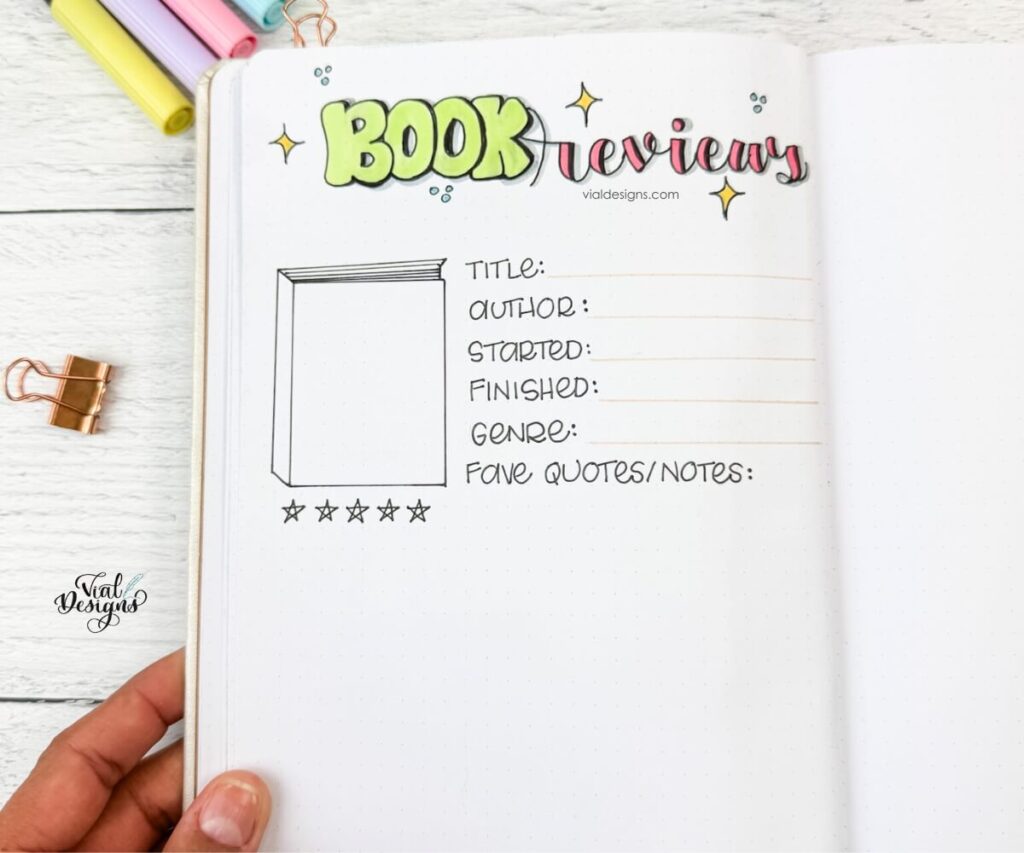 BOOK reviews
vialdesigns.com
TITLe:
AUTHOR:
STARTED:
FINISHED:
GeNRe:
FAVe QUOTES/NOTES:
Vial
Designs